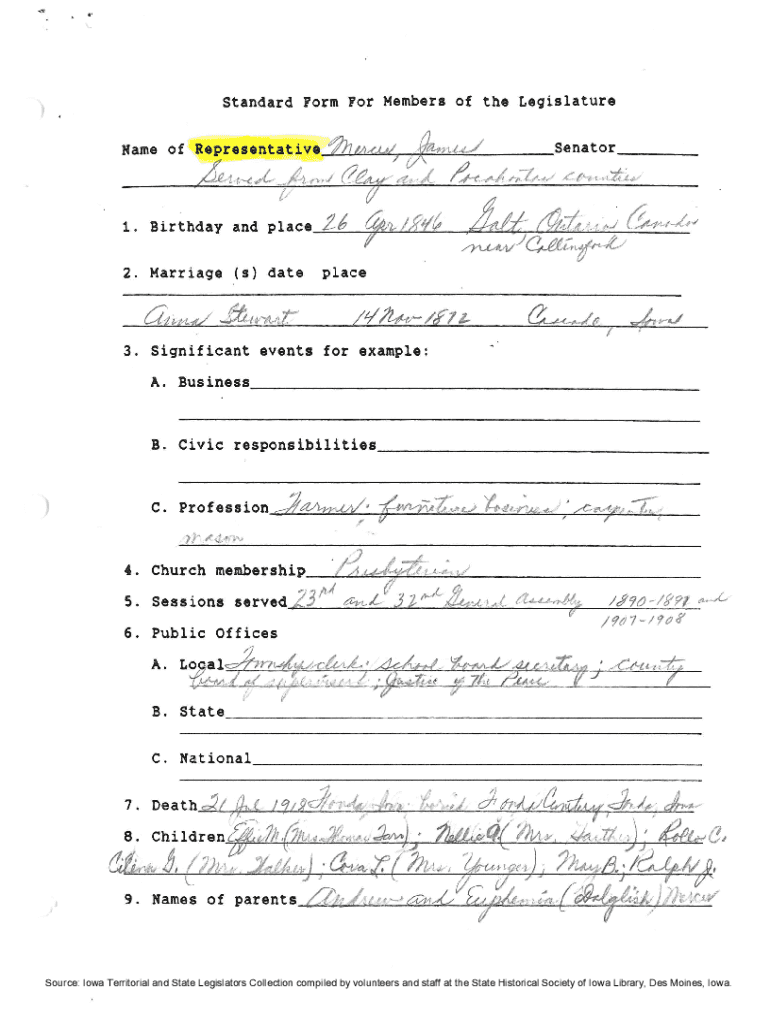 Standard Form For Members of the Legislature
Name of Representative Mercer, James Senator
Served from Clay and Pocahontas counties
1. Birthday and place 26 Apr 1846 Galt Ontario Canada
near Collingford
2. Marriage (s) date place
Anna Stewart 14 Nov 1872 Cascade, Iowa
3. Significant events for example:
A. Business
B. Civic responsibilities
C. Profession Farmer; furniture business; carpenter,
mason
4. Church membership Presbyterian
5. Sessions served 23rd and 32nd General Assembly 1890-1891 and
1907-1908
6. Public Offices
A. Local Township clerk; school board secretary; county
board of supervisors; Justice of the Peace
B. State
C. National
7. Death 21 Jul 1918 Fonda, Iowa buried Fonda Cemetery, Fonda, Iowa
8. Children Effie M. (Mrs. Thomas Tarr); Nellie A (Mrs. Gaither); Rollo C.
G. (Mrs. Walker); Cora L. (Mrs. Younger); May B.; Ralph J.
9. Names of parents Andrew and Euphemia (Dalglish) Mercer
Source: Iowa Territorial and State Legislators Collection compiled by volunteers and staff at the State Historical Society of Iowa Library, Des Moines, Iowa.